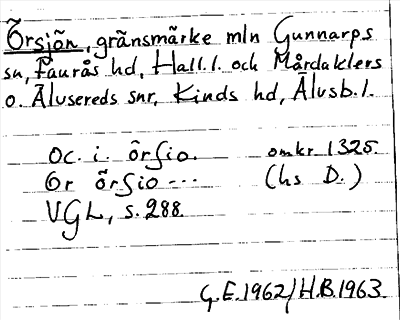 Örsjön, gränsmärke mln Gunnarps
sn, Faurås hd, Hall. l. och Mårdaklevs
o. Älvsereds snr, Kinds hd, Älvsb. l.
oc. i. örsio. omkr 1325
Or örsio --- (hs D.)
VGL, s. 288.
G.E. 1962/H.B. 1963.